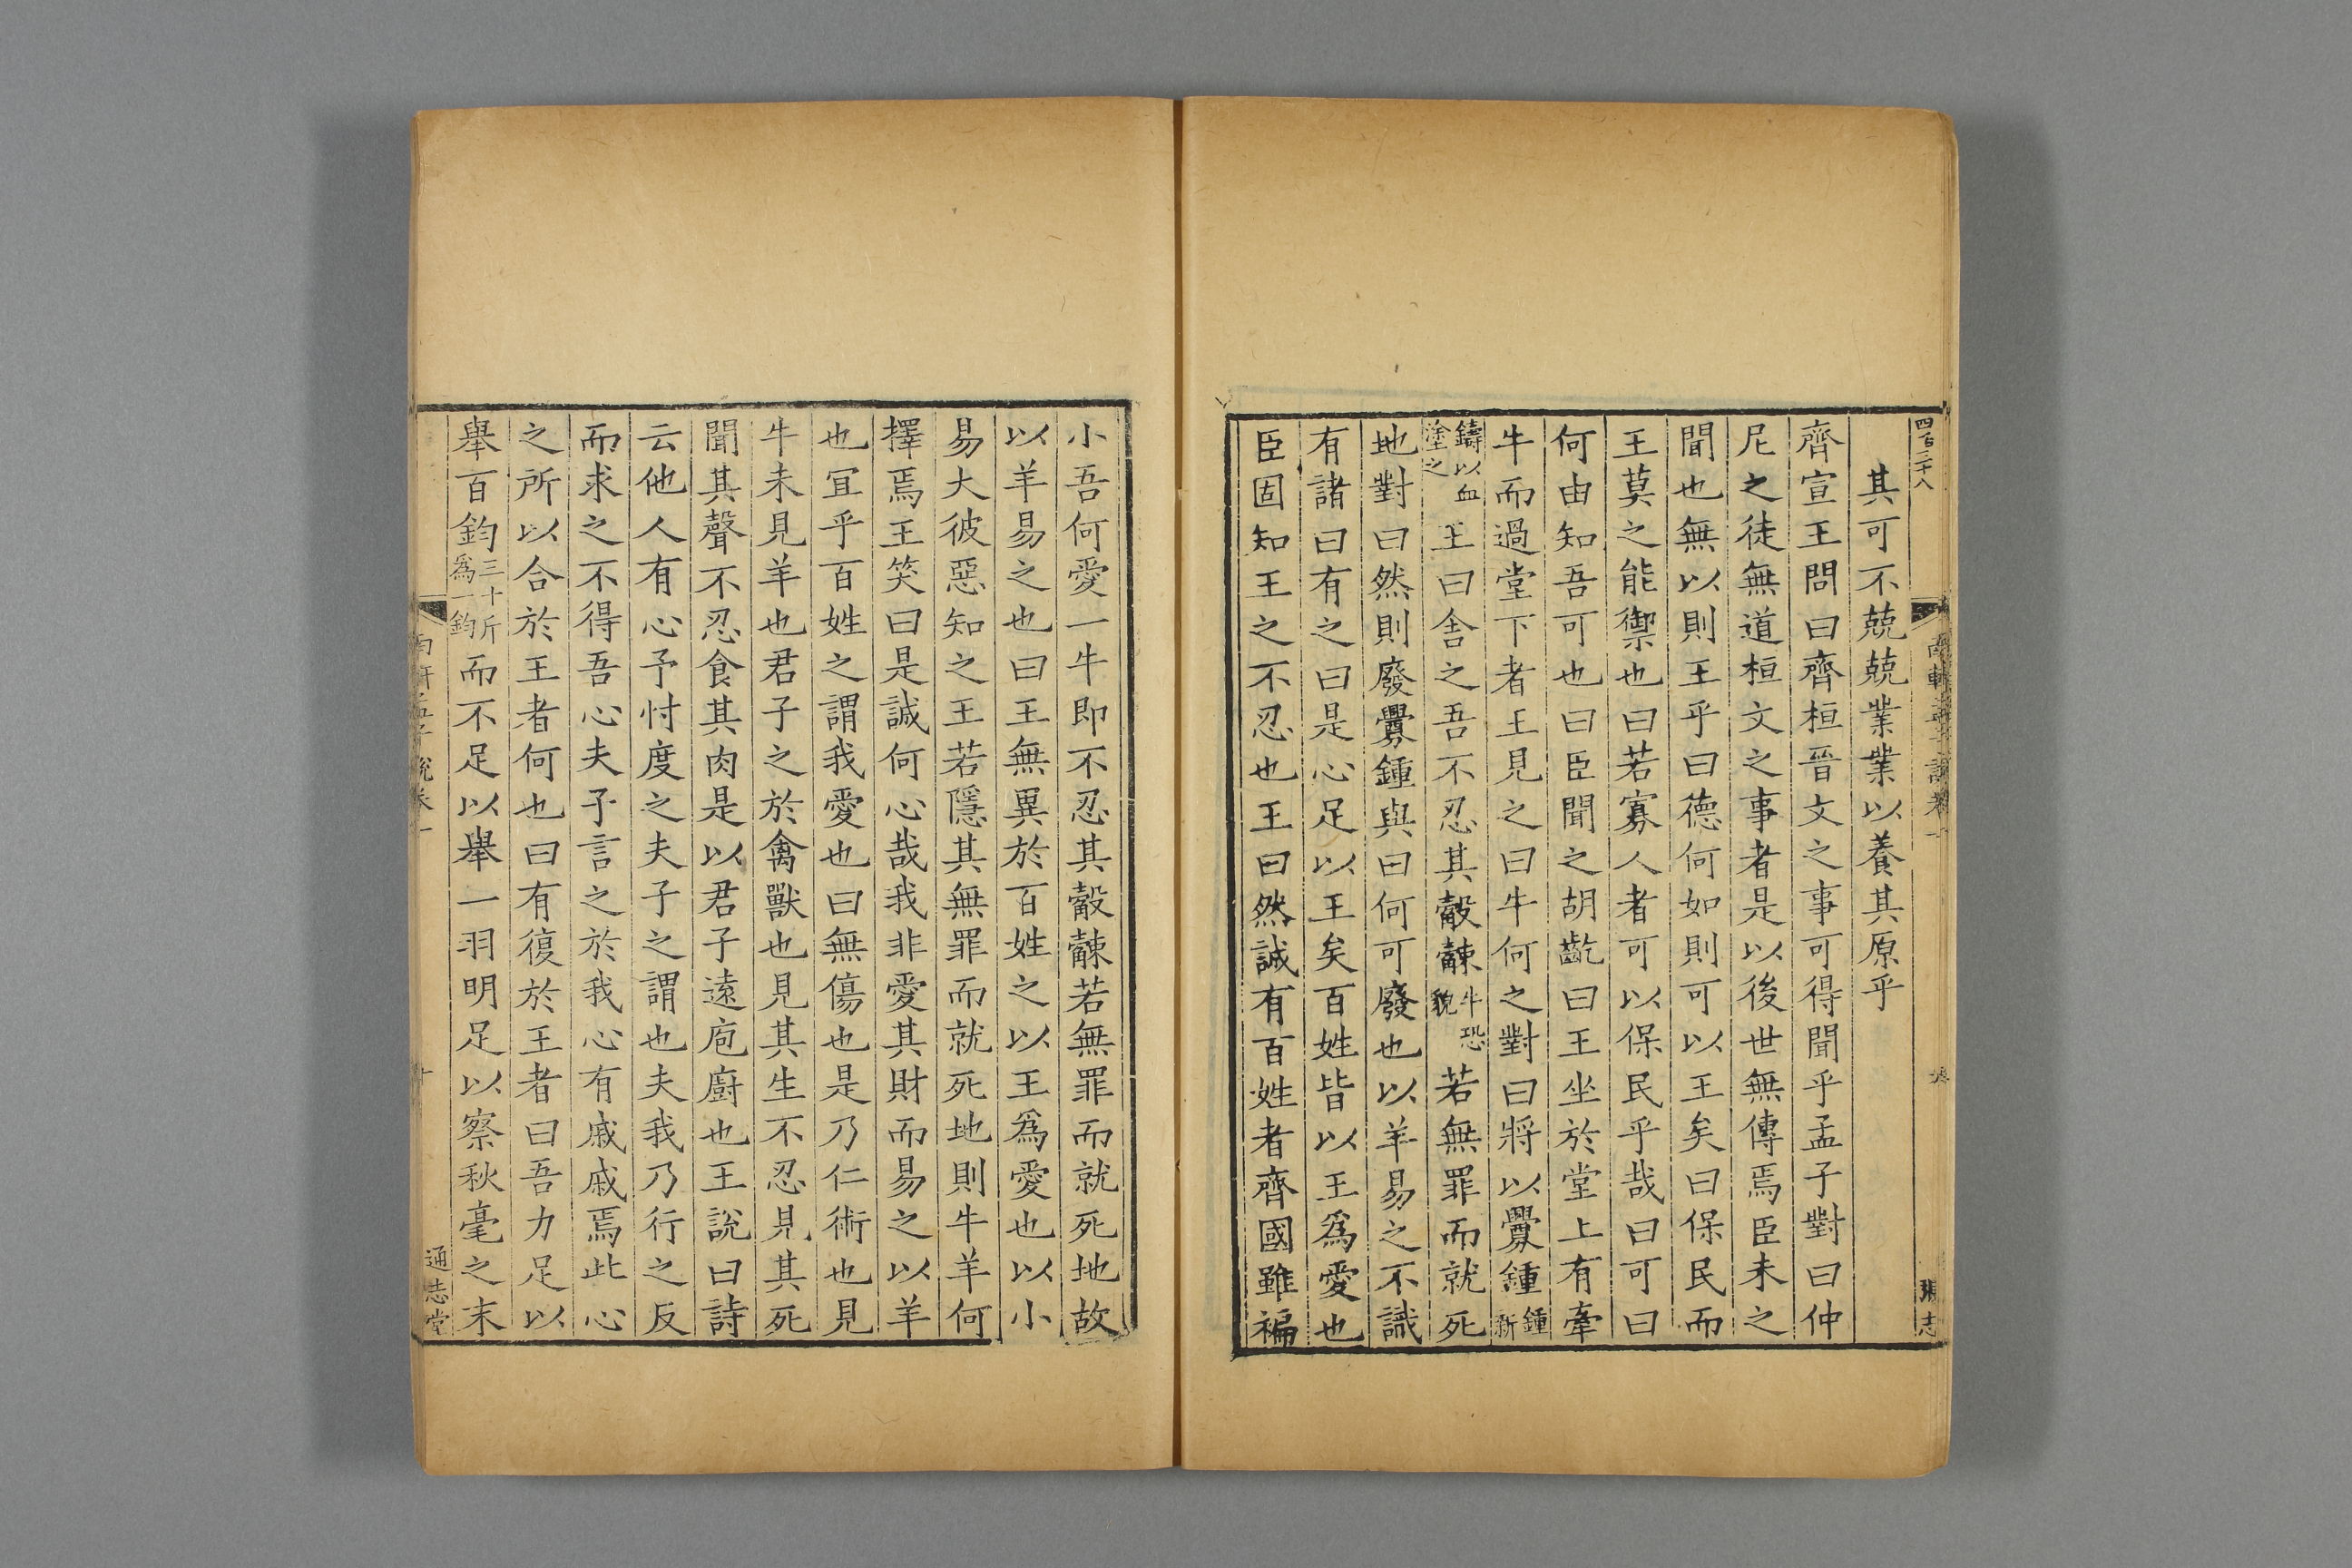 四百三十八
其可不兢兢業業以養其原乎
齊宣王問曰齊桓晉文之事可得聞乎孟子對曰仲
尼之徒無道桓文之事者是以後世無傳焉臣未之
聞也無以則王乎曰德何如則可以王矣曰保民而
王莫之能禦也曰若寡人者可以保民乎哉曰可曰
何由知吾可也曰臣聞之胡齕曰王坐於堂上有牽
牛而過堂下者王見之曰牛何之對曰將以釁鍾新鍾
鑄以血塗之王曰舍之吾不忍其觳觫牛恐貌若無罪而就死
地對曰然則廢釁鍾與曰何可廢也以羊易之不識
有諸曰有之曰是心足以王矣百姓皆以王爲愛也
臣固知王之不忍也王曰然誠有百姓者齊國雖褊
小吾何愛一牛即不忍其觳觫若無罪而就死地故
以羊易之也曰王無異於百姓之以王爲愛也以小
易大彼惡知之王若隱其無罪而就死地則牛羊何
擇焉王笑曰是誠何心哉我非愛其財而易之以羊
也宜乎百姓之謂我愛也曰無傷也是乃仁術也見
牛未見羊也君子之於禽獸也見其生不忍見其死
聞其聲不忍食其肉是以君子遠庖廚也王說曰詩
云他人有心予忖度之夫子之謂也夫我乃行之反
而求之不得吾心夫子言之於我心有戚戚焉此心
之所以合於王者何也曰有復於王者曰吾力足以
舉百鈞三十斤爲一鈞而不足以舉一羽明足以察秋毫之末
南軒孟子說卷一
十
通志堂